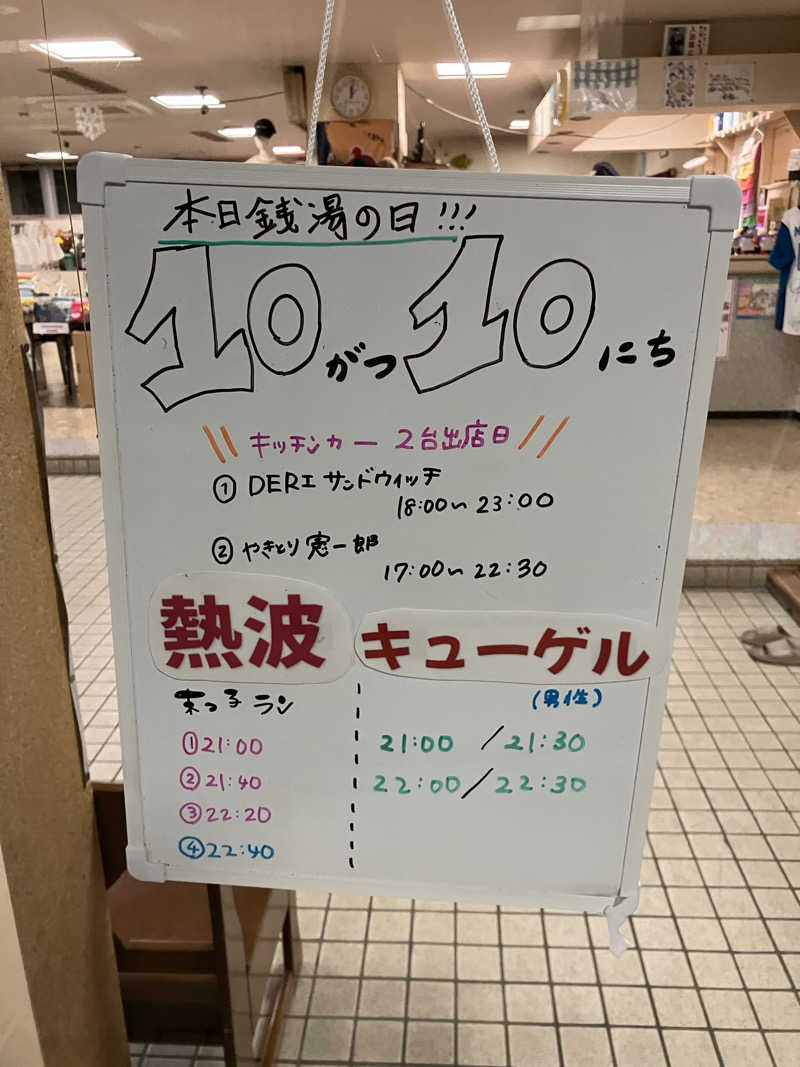 本日銭湯の日!!!
10がつ10にち
\\ キッチンカー 2台出店日 //
① DERI サンドウィッチ
18:00〜23:00
② やきとり 憲一郎
17:00〜22:30
熱波
末っ子ラン
①21:00
②21:40
③22:20
④22:40
キューゲル
(男性)
21:00 / 21:30
22:00 / 22:30